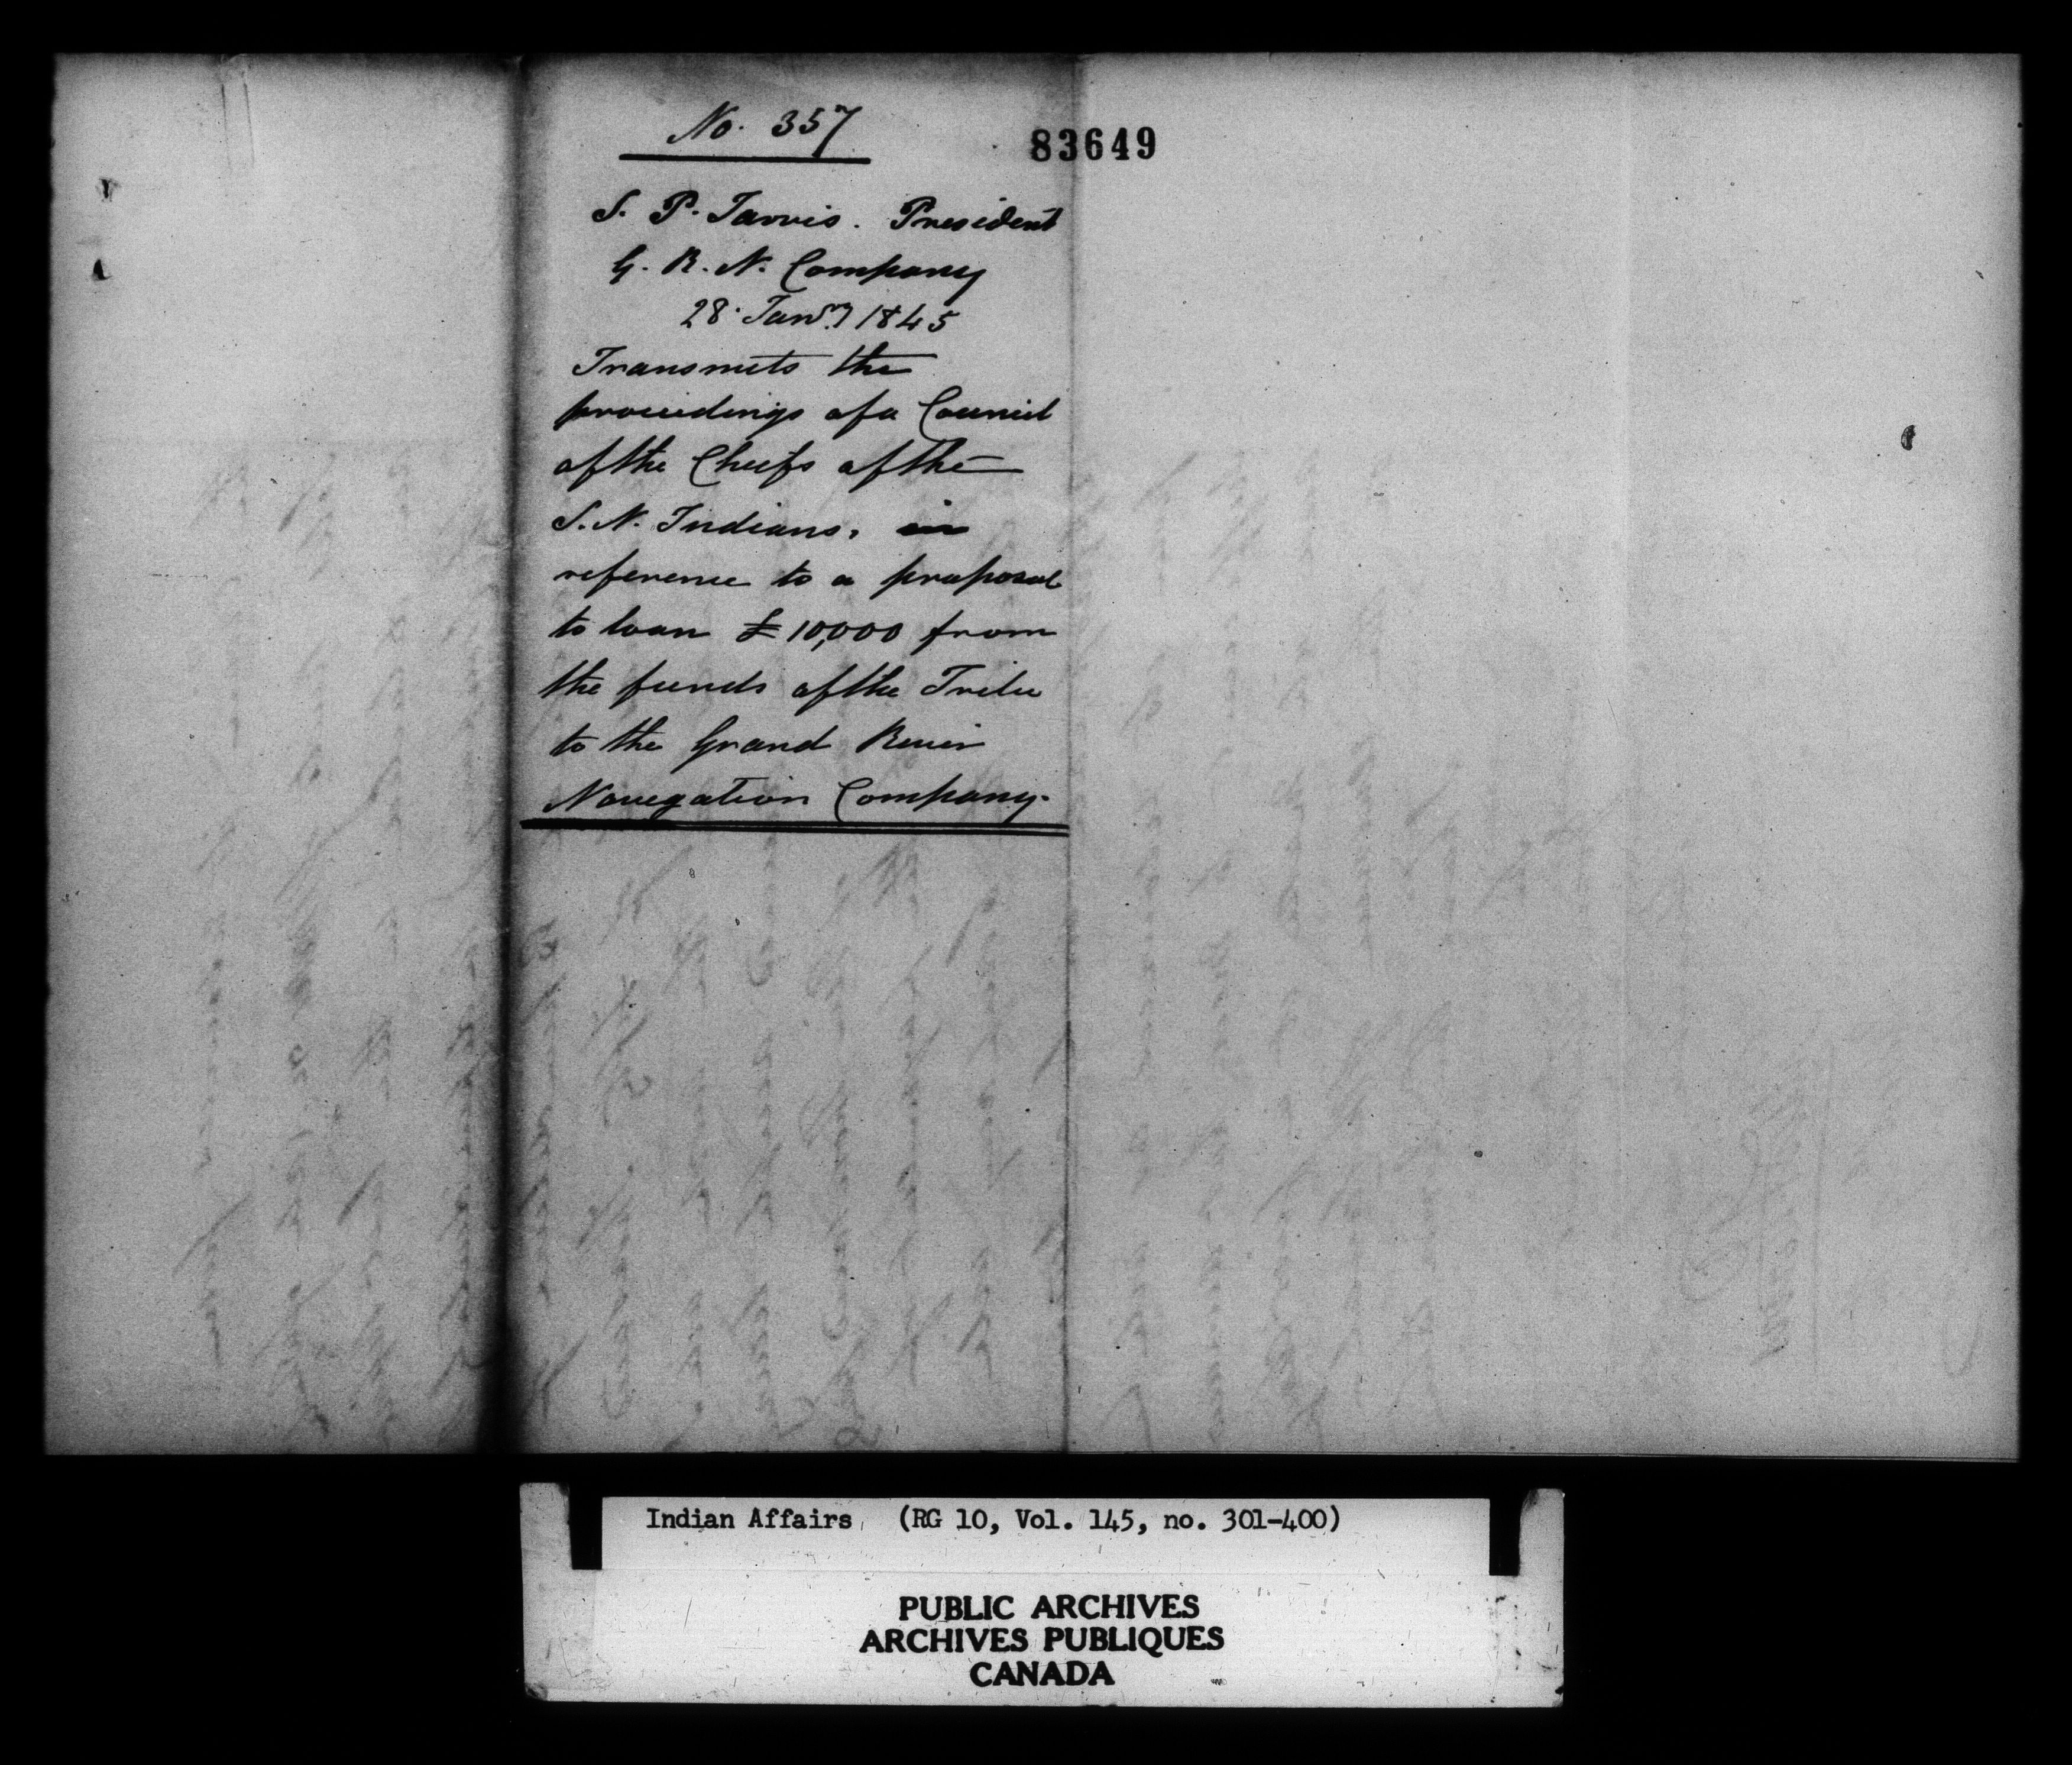 No. 357
83649
S. P. Jarvis. President
G. R. N. Company
28 Jany 1845
Transmits the
proceedings of a Council
of the Chiefs of the
S. N. Indians, in
reference to a proposal
to loan £10,000 from
the funds of the Tribe
to the Grand River
Navigation Company.
Indian Affairs (RG 10, Vol. 145, no. 301-400)
PUBLIC ARCHIVES
ARCHIVES PUBLIQUES
CANADA